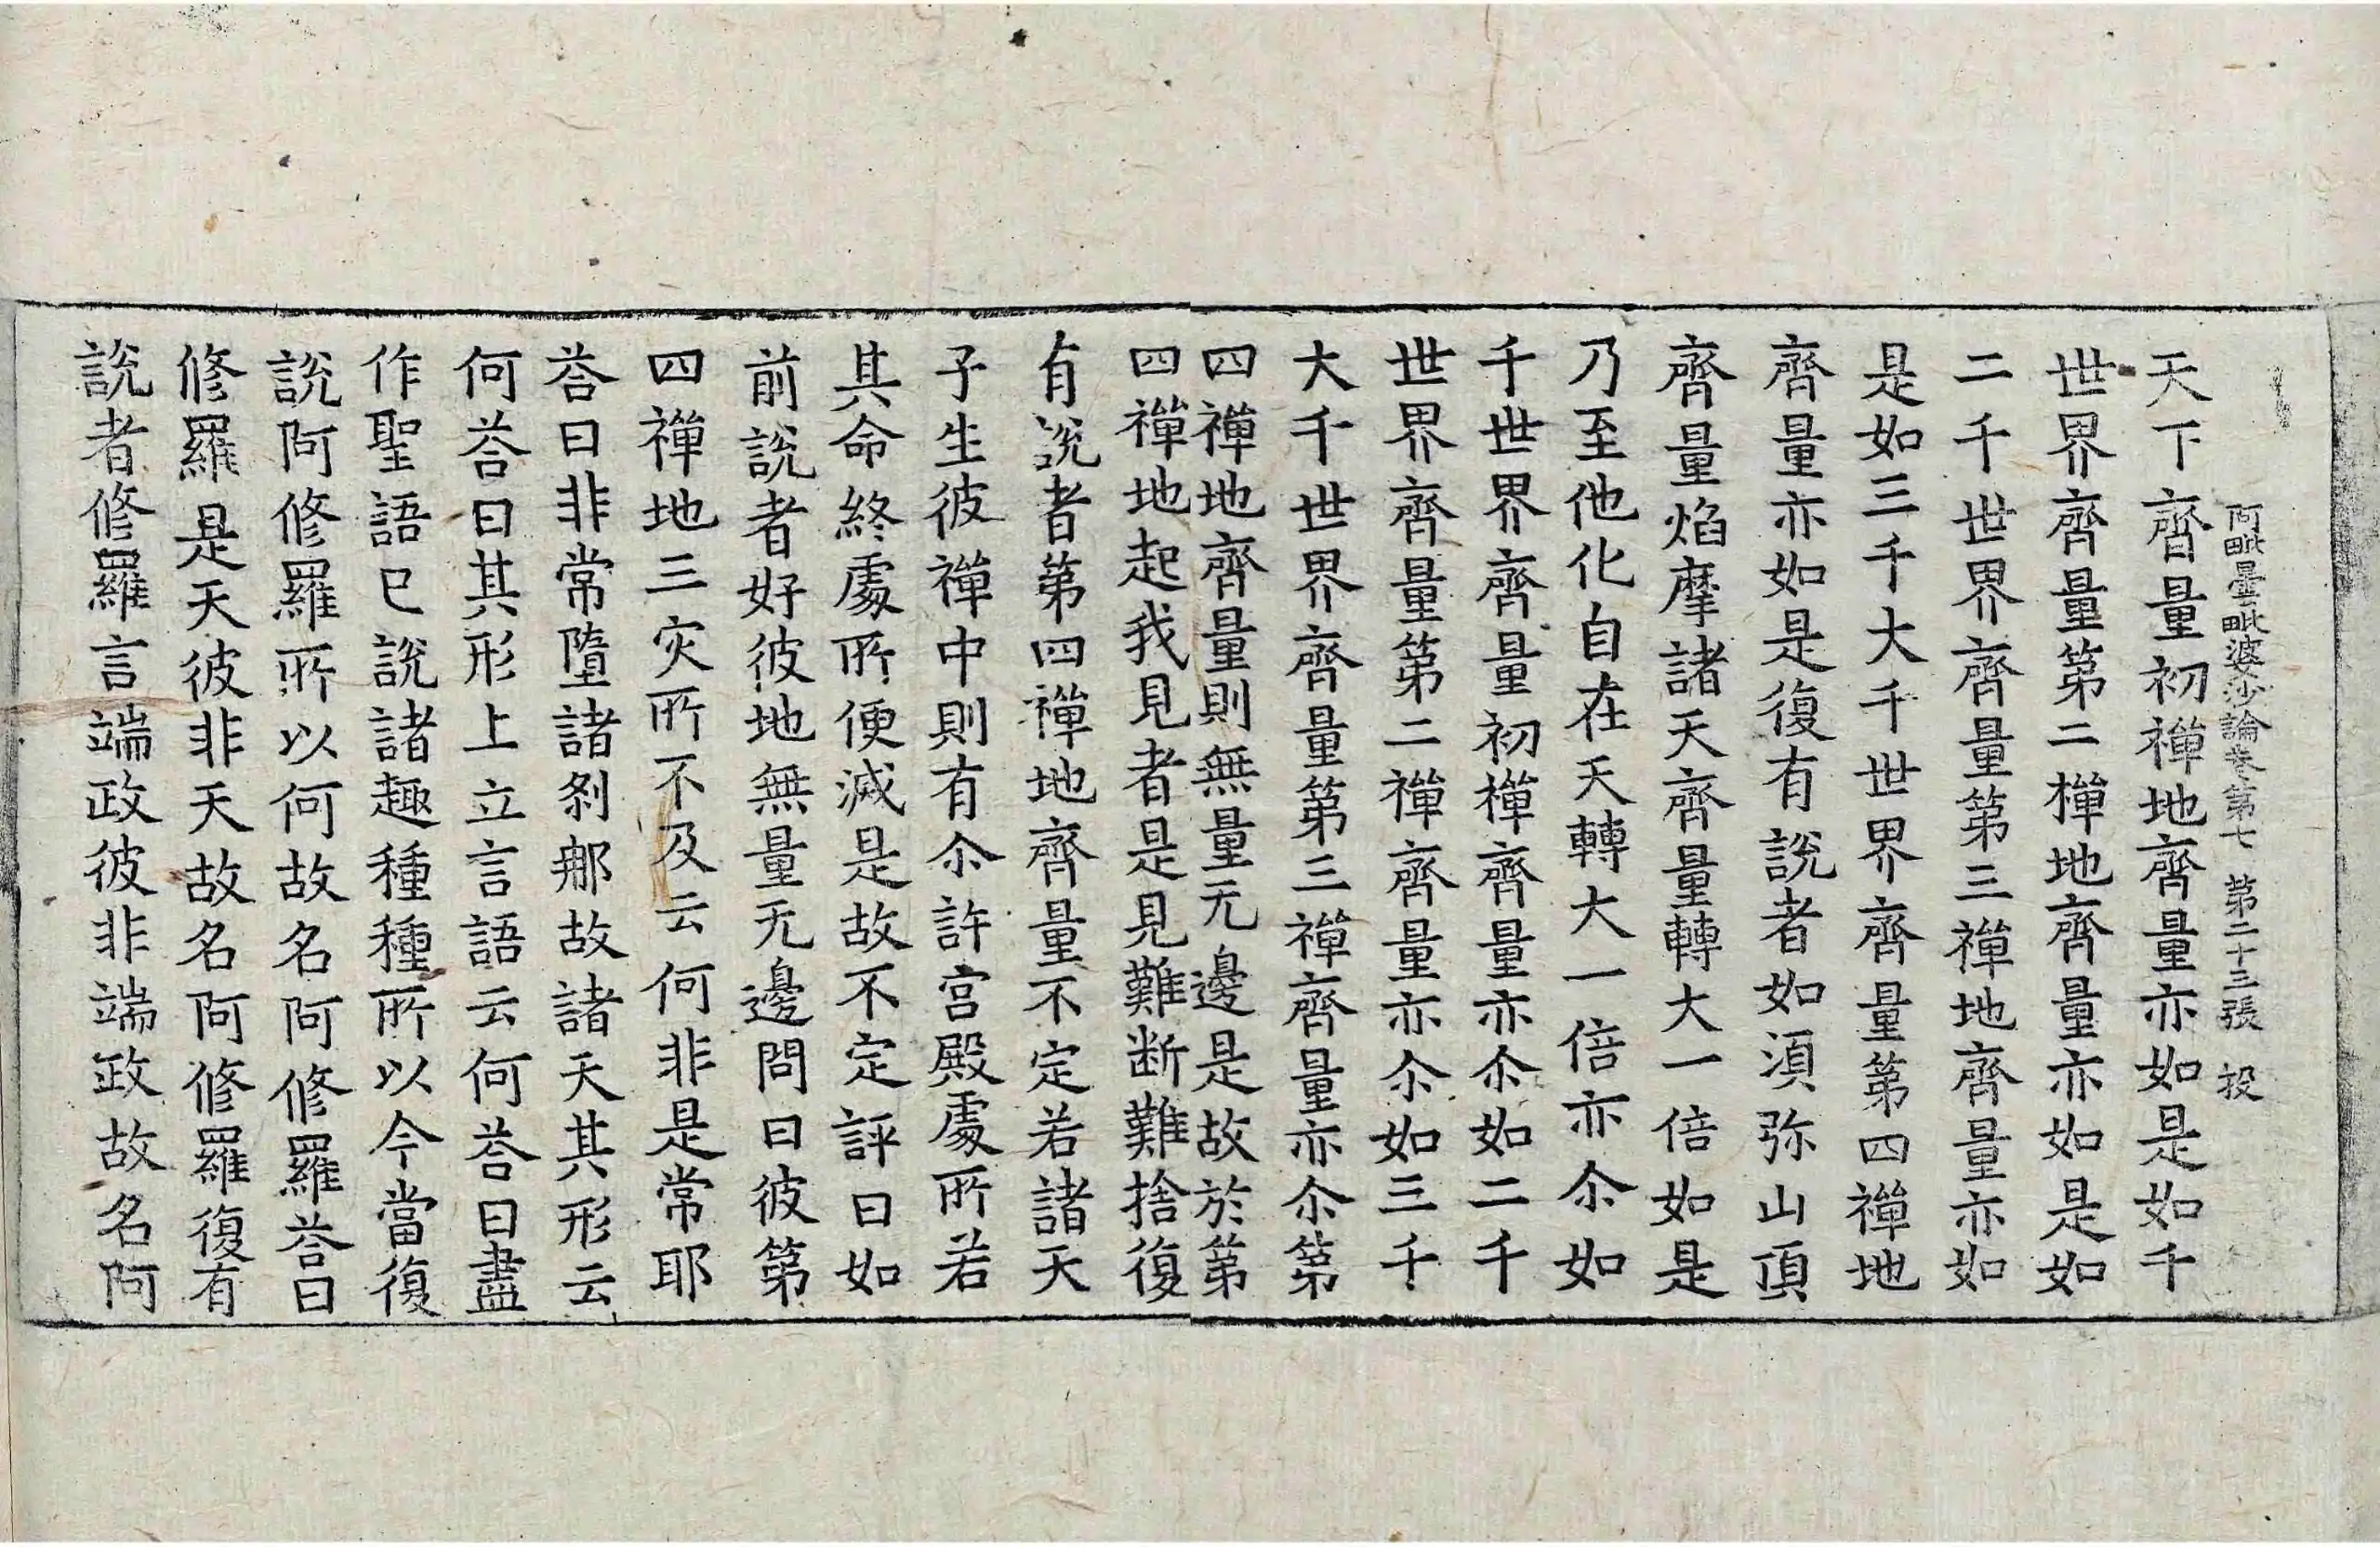 阿毗曇毗婆沙論卷第七 第二十三張 投
天下齊量初禪地齊量亦如是如千
世界齊量第二禪地齊量亦如是如
二千世界齊量第三禪地齊量亦如
是如三千大千世界齊量第四禪地
齊量亦如是復有說者如湏弥山頂
齊量焰摩諸天齊量轉大一倍如是
乃至他化自在天轉大一倍亦尒如
千世界齊量初禪齊量亦尒如二千
世界齊量第二禪齊量亦尒如三千
大千世界齊量第三禪齊量亦尒第
四禪地齊量則無量无邊是故於第
四禪地起我見者是見難断難捨復
有說者第四禪地齊量不定若諸天
子生彼禪中則有尒許宫殿處所若
其命終處所便滅是故不定評曰如
前說者好彼地無量无邊問曰彼第
四禪地三灾所不及云何非是常耶
荅曰非常墮諸剎那故諸天其形云
何荅曰其形上立言語云何荅曰盡
作聖語已說諸趣種種所以今當復
說阿修羅所以何故名阿修羅荅曰
修羅是天彼非天故名阿修羅復有
說者修羅言端政彼非端政故名阿